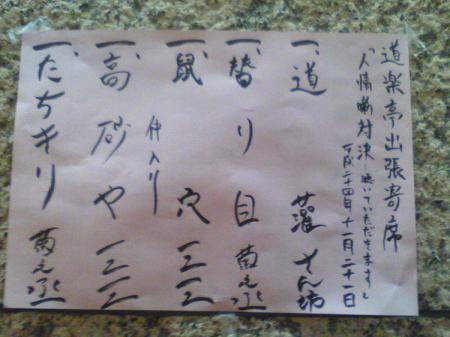 道楽亭出張寄席
「人情噺対決〜泣いていただきます」
平成二十四年十一月二十一日
一、道灌 さん坊
一、替り目 菊之丞
一、鼠穴 三三
仲入り
一、高砂や 三三
一、たちきり 菊之丞